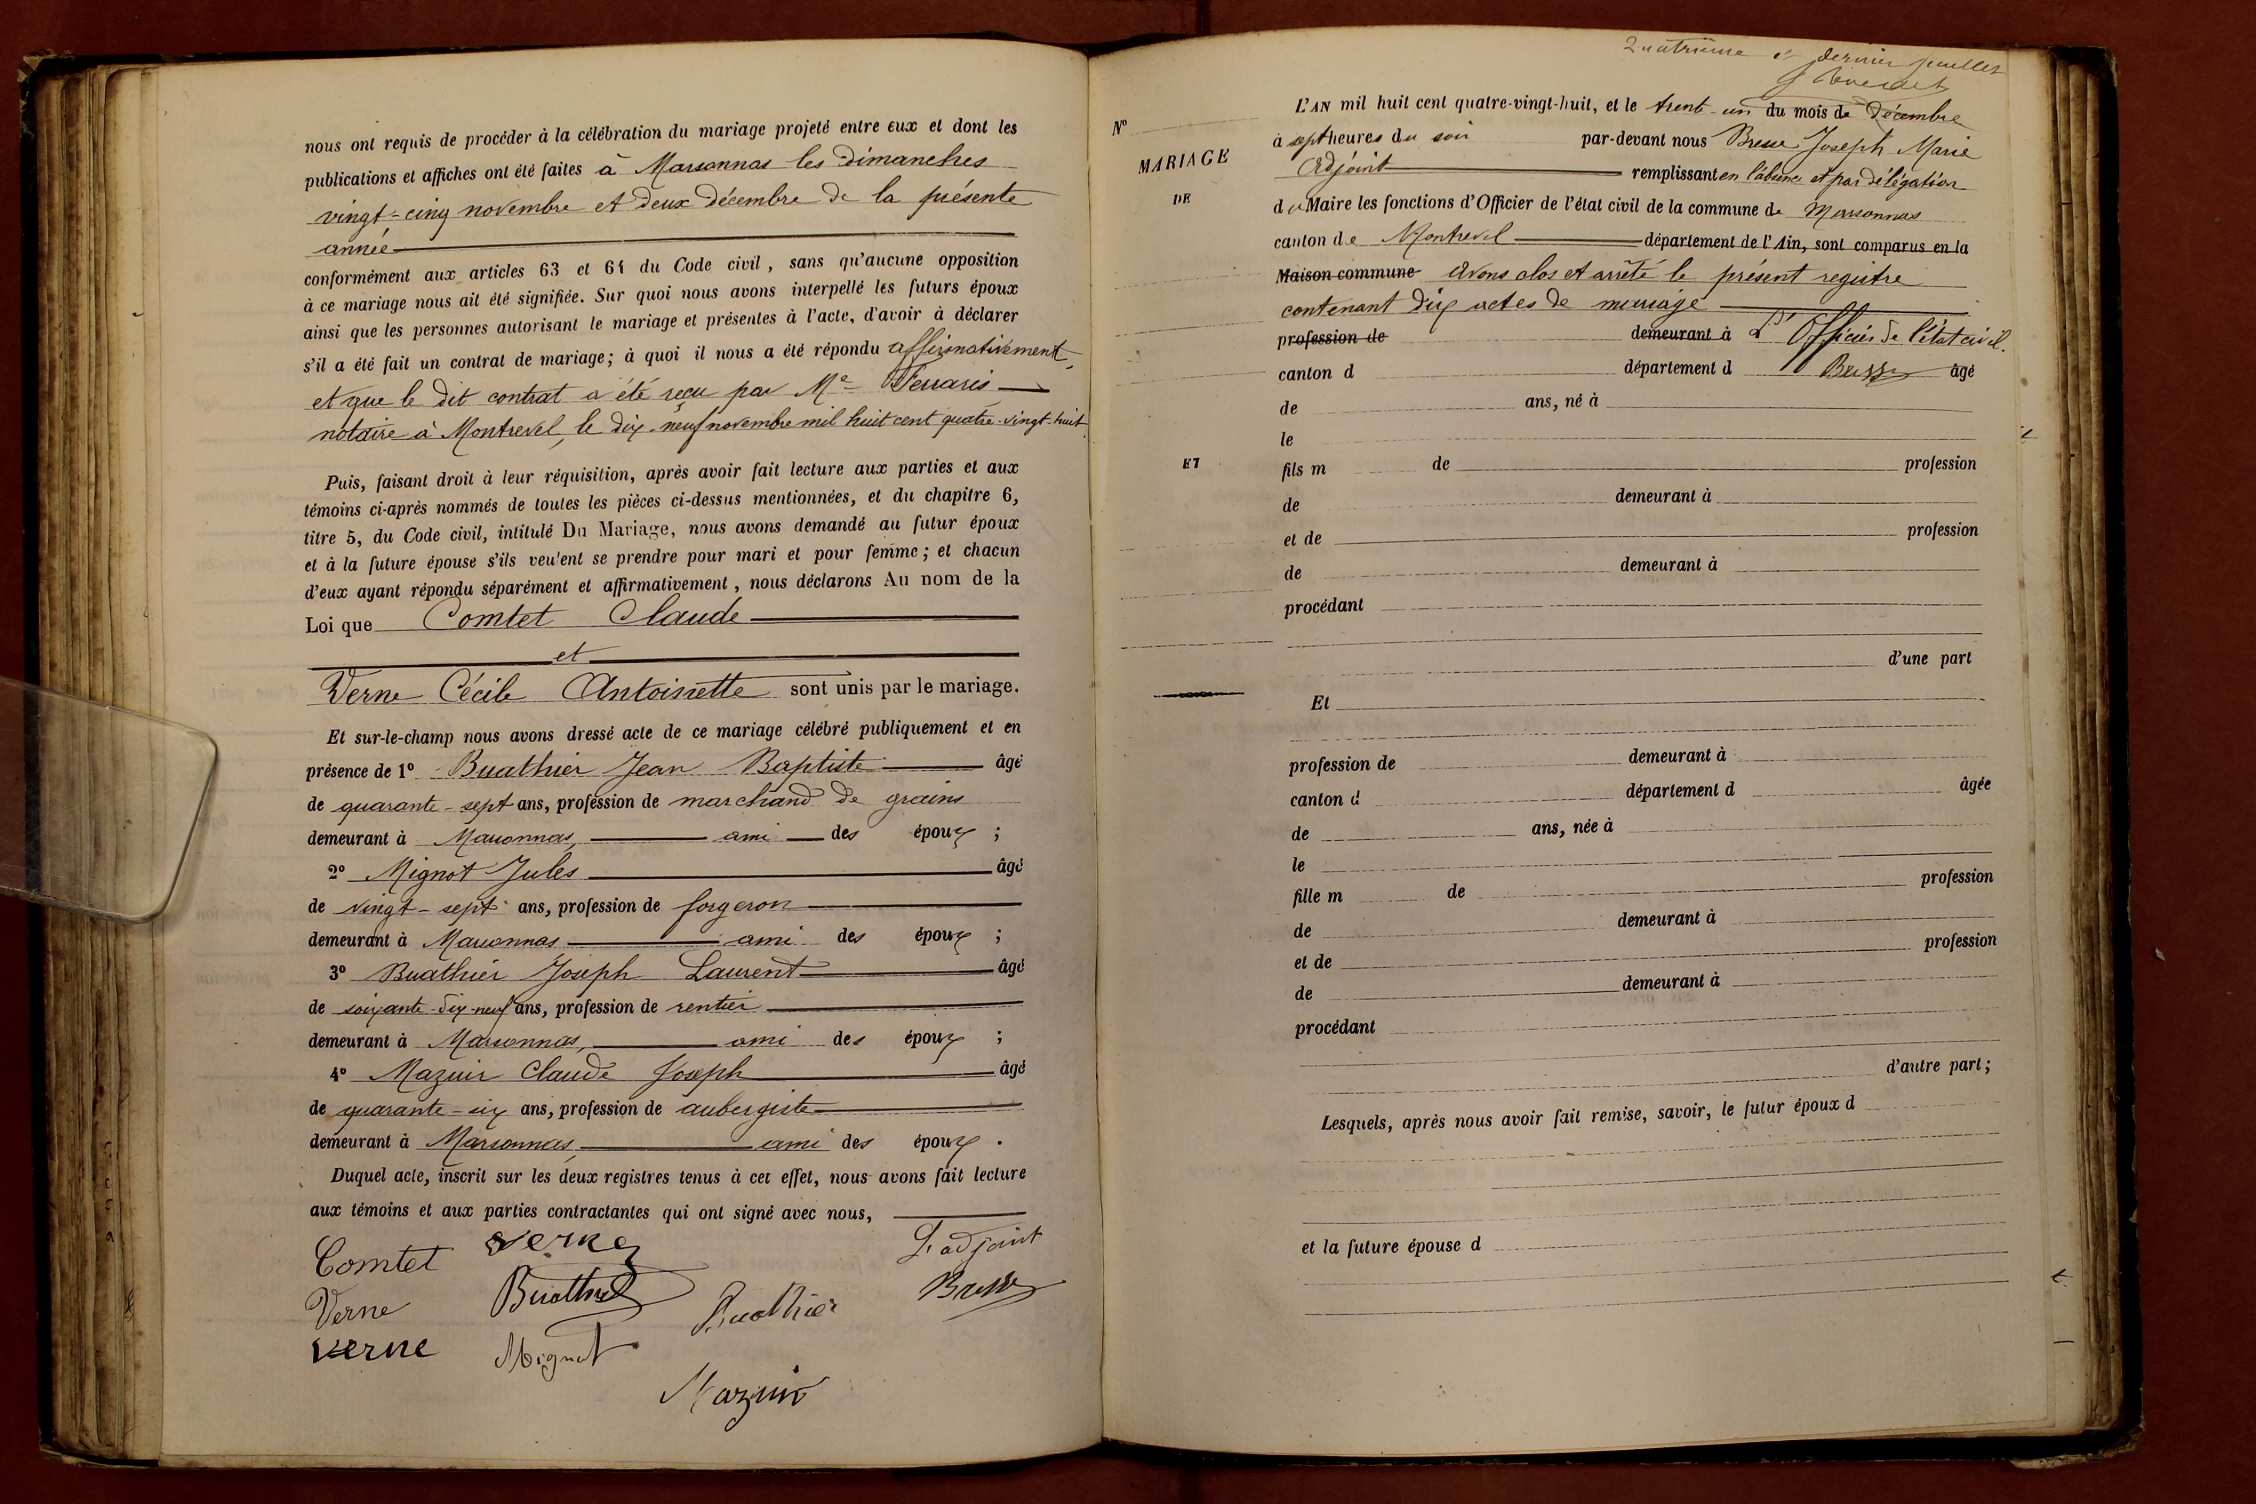 nous ont requis de procéder à la célébration du mariage projeté entre eux et dont les
publications et affiches ont été faites à Marsonnas les dimanches
vingt-cinq novembre et deux décembre de la présente
année
conformément aux articles 63 et 64 du Code civil, sans qu'aucune opposition
à ce mariage nous ait été signifiée. Sur quoi nous avons interpellé les futurs époux
ainsi que les personnes autorisant le mariage et présentes à l'acte, d'avoir à déclarer
s'il a été fait un contrat de mariage; à quoi il nous a été répondu affirmativement,
et que le dit contrat a été reçu par Me Ferraris
notaire à Montrevel, le dix-neuf novembre mil huit cent quatre-vingt-huit.
Puis, faisant droit à leur réquisition, après avoir fait lecture aux parties et aux
témoins ci-après nommés de toutes les pièces ci-dessus mentionnées, et du chapitre 6,
titre 5, du Code civil, intitulé Du Mariage, nous avons demandé au futur époux
et à la future épouse s'ils veulent se prendre pour mari et pour femme; et chacun
d'eux ayant répondu séparément et affirmativement, nous déclarons Au nom de la
Loi que Comtet Claude
et
Verne Cécile Antoinette sont unis par le mariage.
Et sur-le-champ nous avons dressé acte de ce mariage célébré publiquement et en
présence de 1° Buathier Jean Baptiste âgé
de quarante-sept ans, profession de marchand de grains
demeurant à Marsonnas, ami des époux ;
2° Mignot Jules âgé
de vingt-sept ans, profession de forgeron
demeurant à Marsonnas ami des époux ;
3° Buathier Joseph Laurent âgé
de soixante-dix-neuf ans, profession de rentier
demeurant à Marsonnas, ami des époux ;
4° Mazuir Claude Joseph âgé
de quarante-six ans, profession de aubergiste
demeurant à Marsonnas, ami des époux .
Duquel acte, inscrit sur les deux registres tenus à cet effet, nous avons fait lecture
aux témoins et aux parties contractantes qui ont signé avec nous,
Comtet Verne L'adjoint
Verne Buathier Buathier Bresse
Verne Mignot
Mazuir
Quatrième et dernier feuillet
N°
MARIAGE
DE
ET
L'AN mil huit cent quatre-vingt-huit, et le trente-un du mois de Décembre
à sept heures du soir par-devant nous Bresse Joseph Marie
Adjoint remplissant en l'absence et par délégation
du Maire les fonctions d'Officier de l'état civil de la commune de Marsonnas
canton de Montrevel département de l'Ain, sont comparus en la
Maison commune Avons clos et arrêté le présent registre
contenant dix actes de mariage
profession de demeurant à L'Officier de l'état civil.
canton d département d Bresse âgé
de ans, né à
le
fils m de profession
de demeurant à
et de profession
de demeurant à
procédant
d'une part
Et
profession de demeurant à
canton d département d âgée
de ans, née à
le
fille m de profession
de demeurant à
et de profession
de demeurant à
procédant
d'autre part;
Lesquels, après nous avoir fait remise, savoir, le futur époux d
et la future épouse d